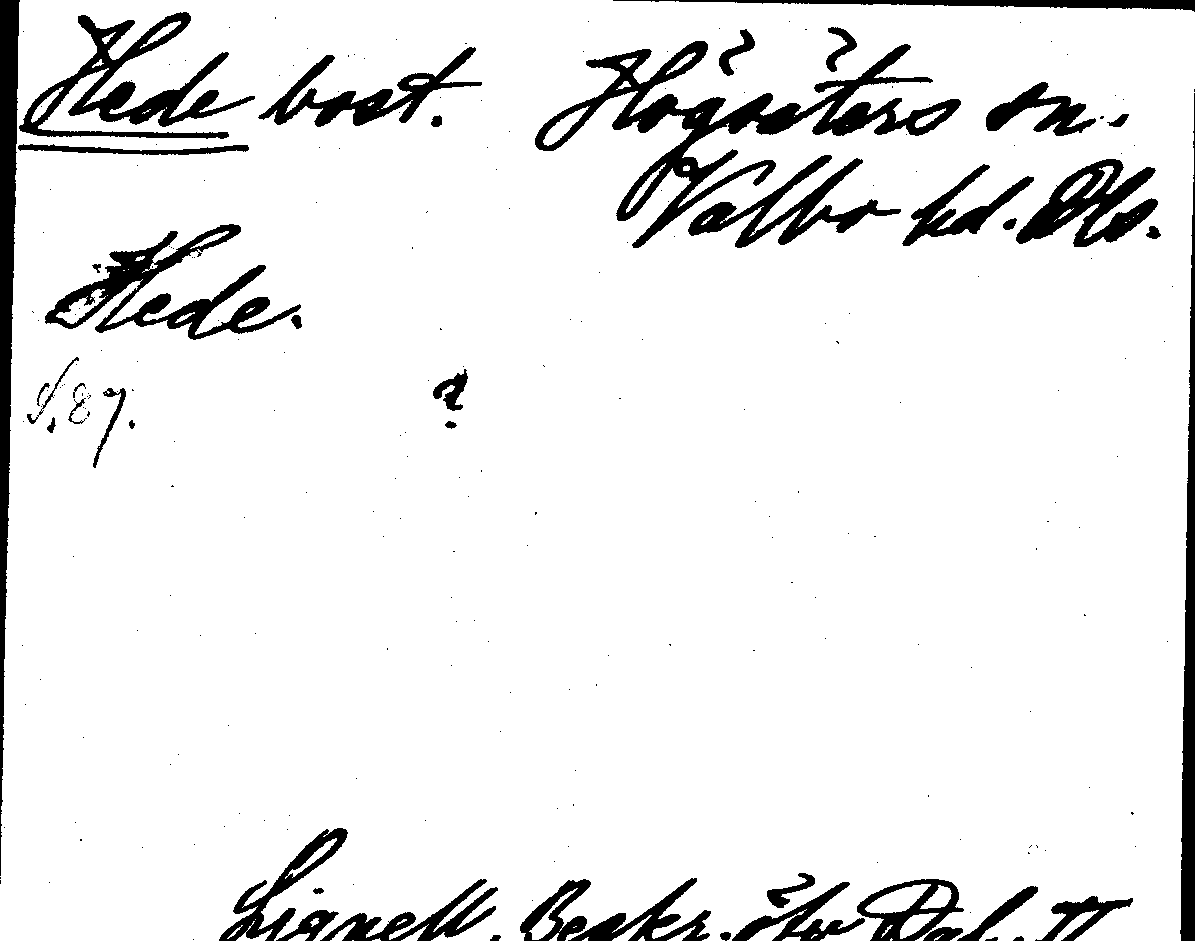 Hede bost. Högsäters sn.
Valbo hd. Dls.
Hede.
S. 87. ?
Lignell, Beskr. öfver Dal. II